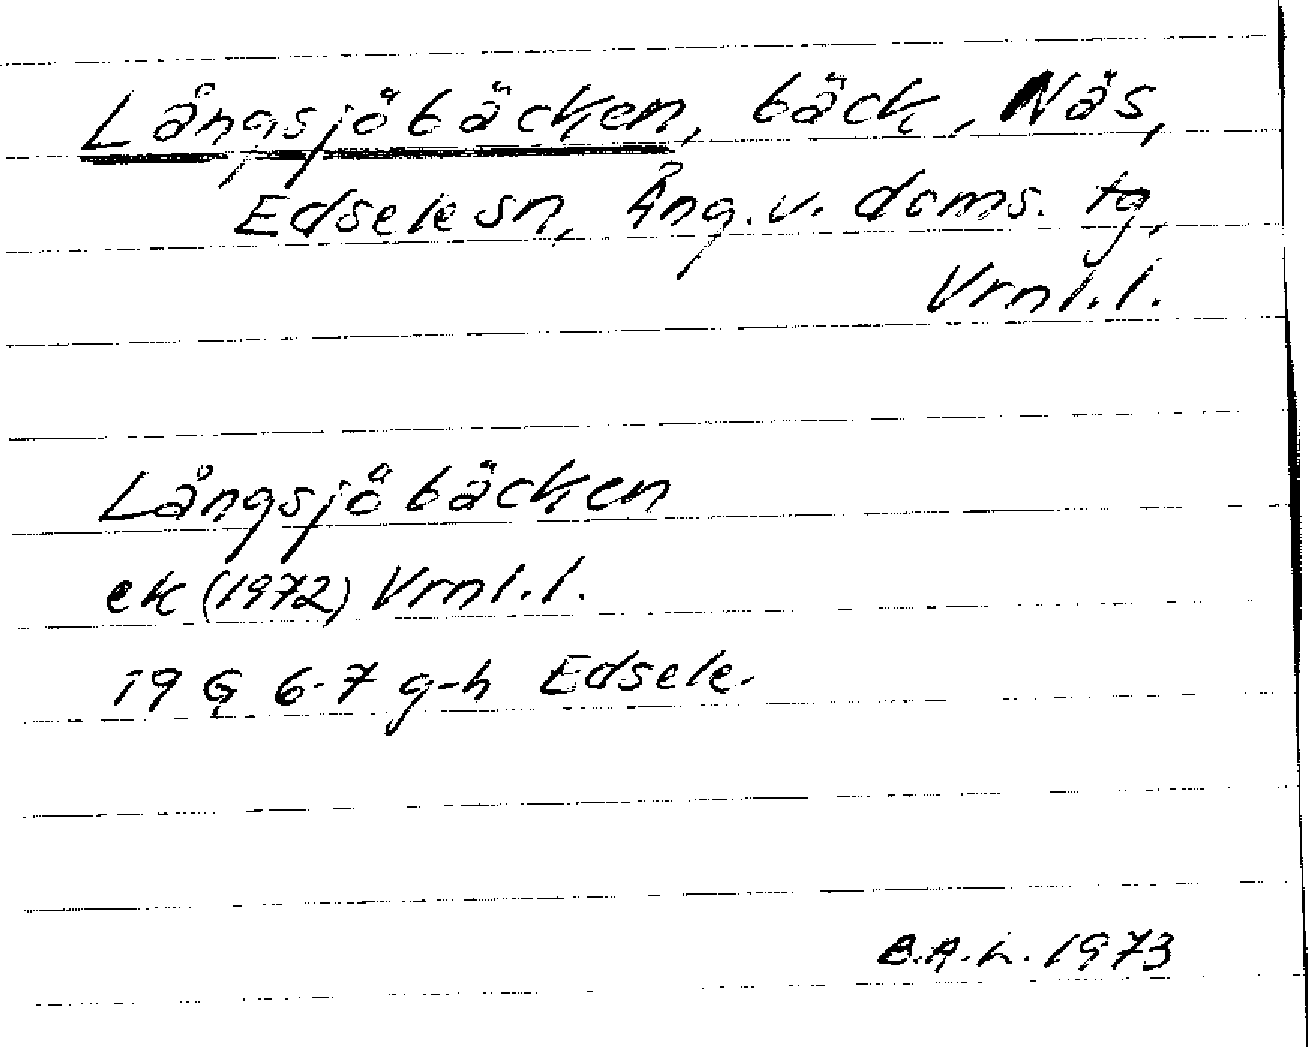 Långsjöbäcken, bäck, Näs,
Edsele sn, Ång. v. doms. tg,
Vrnl. l.
Långsjöbäcken
ek (1972) Vrnl. l.
19 G 6-7 g-h Edsele.
B.A.L. 1973